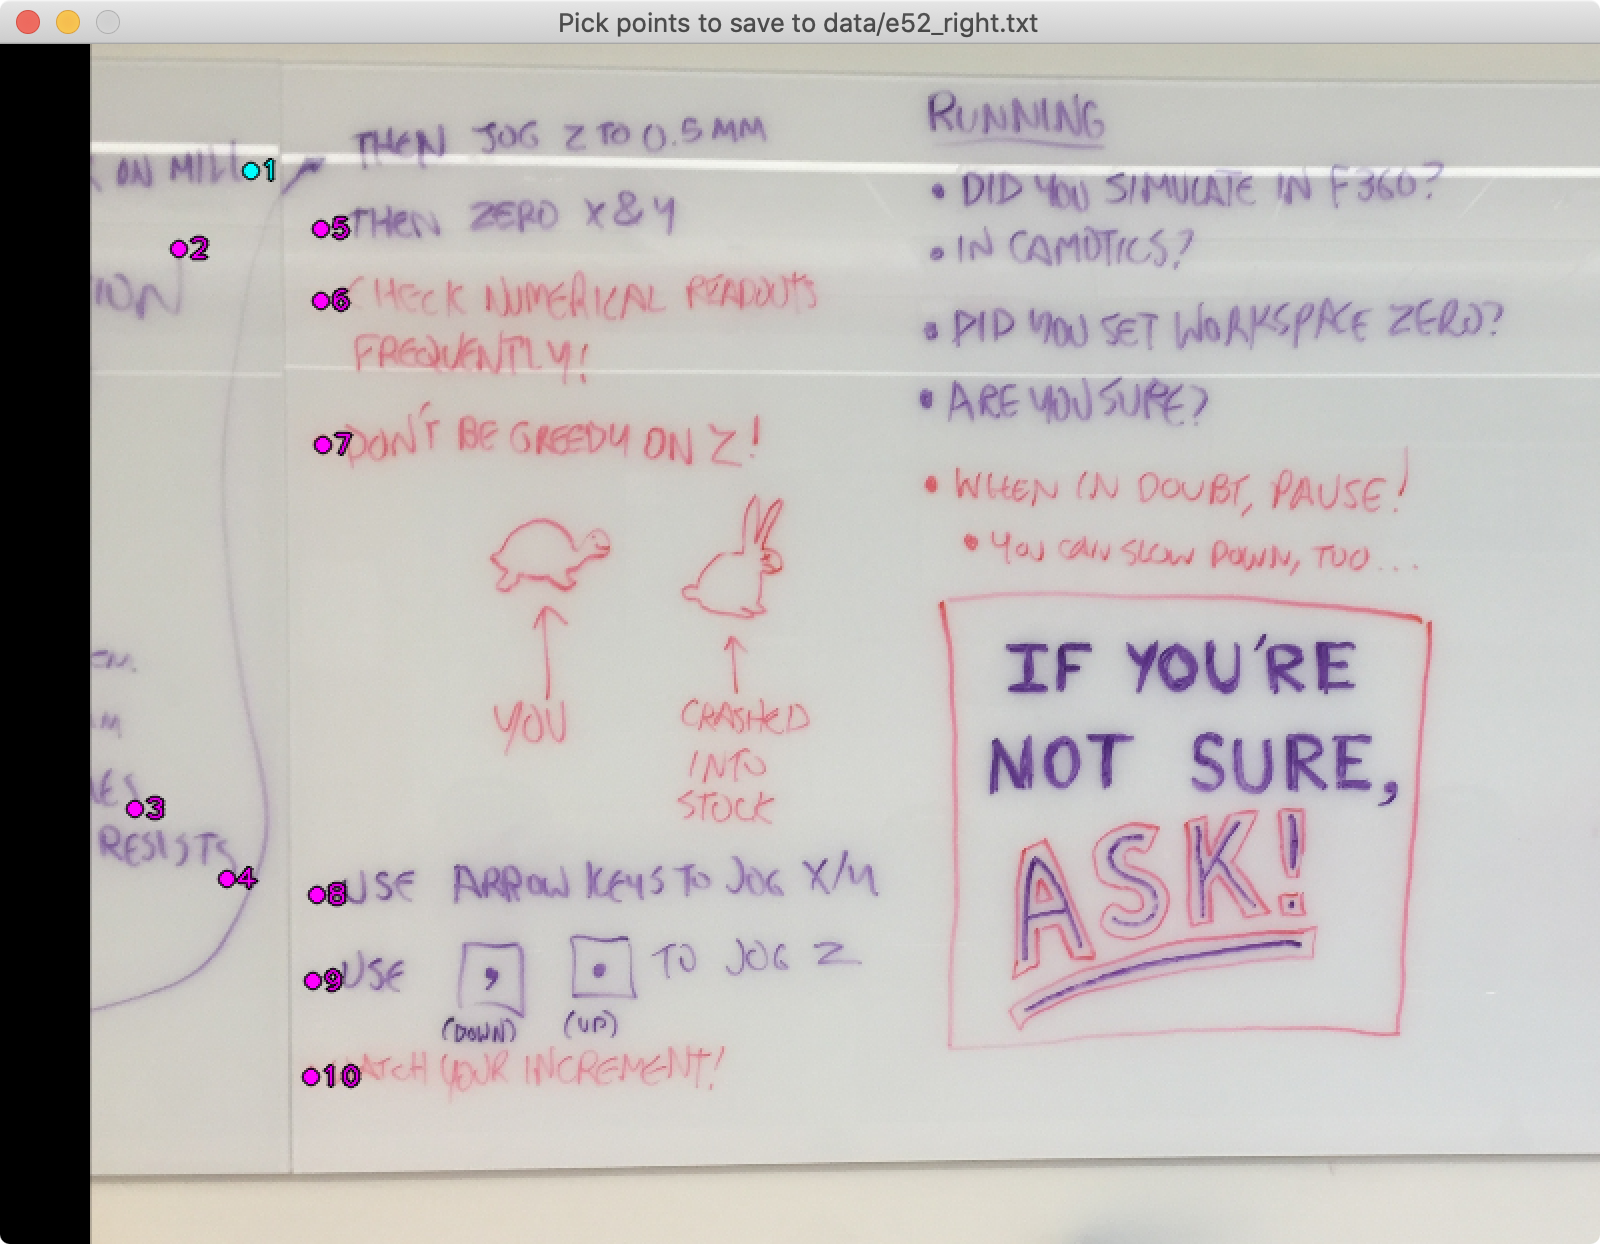 Pick points to save to data/e52_right.txt
ON MILL
1
2
3
RESISTS
4
THEN JOG Z TO 0.5MM
5 THEN ZERO X & Y
6 CHECK NUMERICAL READOUTS
FREQUENTLY!
7 DON'T BE GREEDY ON Z!
YOU
CRASHED
INTO
STOCK
8 USE ARROW KEYS TO JOG X/Y
9 USE , . TO JOG Z
(DOWN) (UP)
10 WATCH YOUR INCREMENT!
RUNNING
• DID YOU SIMULATE IN F360?
• IN CAMOTICS?
• DID YOU SET WORKSPACE ZERO?
• ARE YOU SURE?
• WHEN IN DOUBT, PAUSE!
• YOU CAN SLOW DOWN, TOO...
IF YOU'RE
NOT SURE,
ASK!